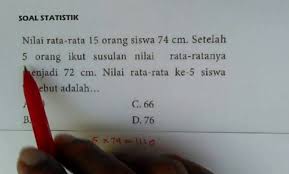 SOAL STATISTIK
Nilai rata-rata 15 orang siswa 74 cm. Setelah
5 orang ikut susulan nilai rata-ratanya
menjadi 72 cm. Nilai rata-rata ke-5 siswa
adalah...
C. 66
B. D. 76